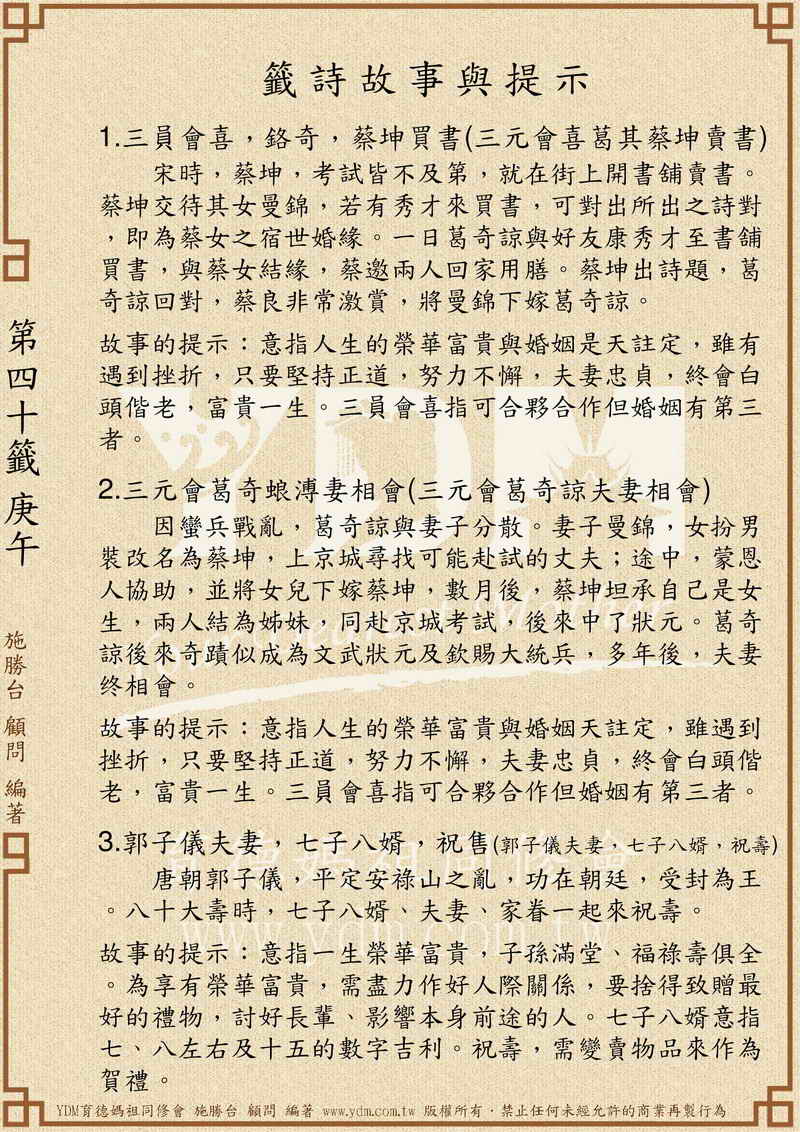 籤詩故事與提示
1.三員會喜，鉻奇，蔡坤買書(三元會喜葛其蔡坤賣書)
宋時，蔡坤，考試皆不及第，就在街上開書舖賣書。
蔡坤交待其女曼錦，若有秀才來買書，可對出所出之詩對
，即為蔡女之宿世婚緣。一日葛奇諒與好友康秀才至書舖
買書，與蔡女結緣，蔡邀兩人回家用膳。蔡坤出詩題，葛
奇諒回對，蔡良非常激賞，將曼錦下嫁葛奇諒。
故事的提示：意指人生的榮華富貴與婚姻是天註定，雖有
遇到挫折，只要堅持正道，努力不懈，夫妻忠貞，終會白
頭偕老，富貴一生。三員會喜指可合夥合作但婚姻有第三
者。
2.三元會葛奇蜋溥妻相會(三元會葛奇諒夫妻相會)
因蠻兵戰亂，葛奇諒與妻子分散。妻子曼錦，女扮男
裝改名為蔡坤，上京城尋找可能赴試的丈夫；途中，蒙恩
人協助，並將女兒下嫁蔡坤，數月後，蔡坤坦承自己是女
生，兩人結為姊妹，同赴京城考試，後來中了狀元。葛奇
諒後來奇蹟似成為文武狀元及欽賜大統兵，多年後，夫妻
终相會。
故事的提示：意指人生的榮華富貴與婚姻天註定，雖遇到
挫折，只要堅持正道，努力不懈，夫妻忠貞，終會白頭偕
老，富貴一生。三員會喜指可合夥合作但婚姻有第三者。
3.郭子儀夫妻，七子八婿，祝售(郭子儀夫妻，七子八婿，祝壽)
唐朝郭子儀，平定安祿山之亂，功在朝廷，受封為王
。八十大壽時，七子八婿、夫妻、家眷一起來祝壽。
故事的提示：意指一生榮華富貴，子孫滿堂、福祿壽俱全
。為享有榮華富貴，需盡力作好人際關係，要捨得致贈最
好的禮物，討好長輩、影響本身前途的人。七子八婿意指
七、八左右及十五的數字吉利。祝壽，需變賣物品來作為
賀禮。
第四十籤 庚午
施勝台 顧問 編著
YDM
www.ydm.com.tw
YDM育德媽祖同修會 施勝台 顧問 編著 www.ydm.com.tw 版權所有．禁止任何未經允許的商業再製行為